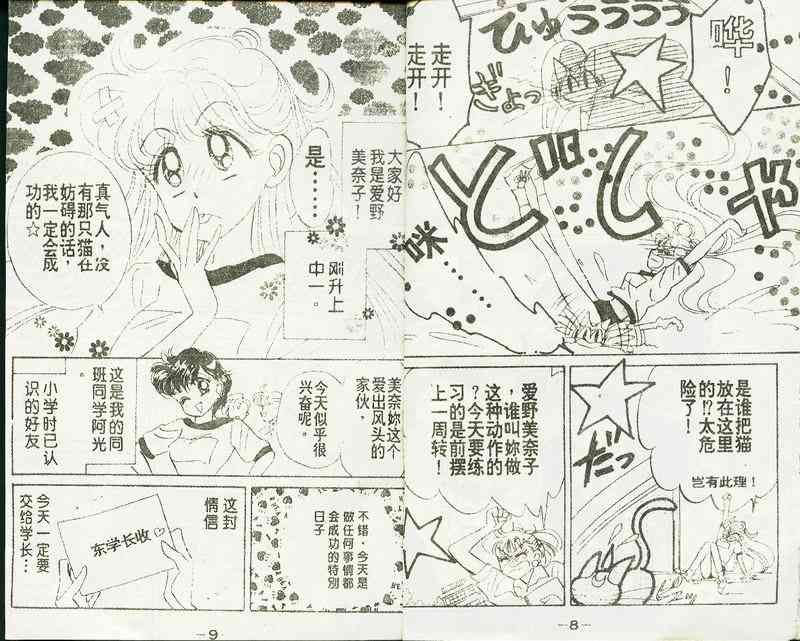 哗！
びゅうううう
ぎょっ
走开！
走开！
どどしゃ
咪…
是谁把猫
放在这里
的!?太危
险了！
岂有此理！
だっ
爱野美奈子
，谁叫妳做
这种动作的
？今天要练
习的是前摆
上一周转！
－8－
大家好
我是爱野
美奈子！
是……
刚升上
中一。
真气人，没
有那只猫在
妨碍的话，
我一定会成
功的☆
美奈妳这个
爱出风头的
家伙，
今天似乎很
兴奋呢。
这是我的同
班同学阿光
。
小学时已认
识的好友
不错，今天是
做任何事情都
会成功的特别
日子
这封
情信
东学长收♡
今天一定要
交给学长…
－9－